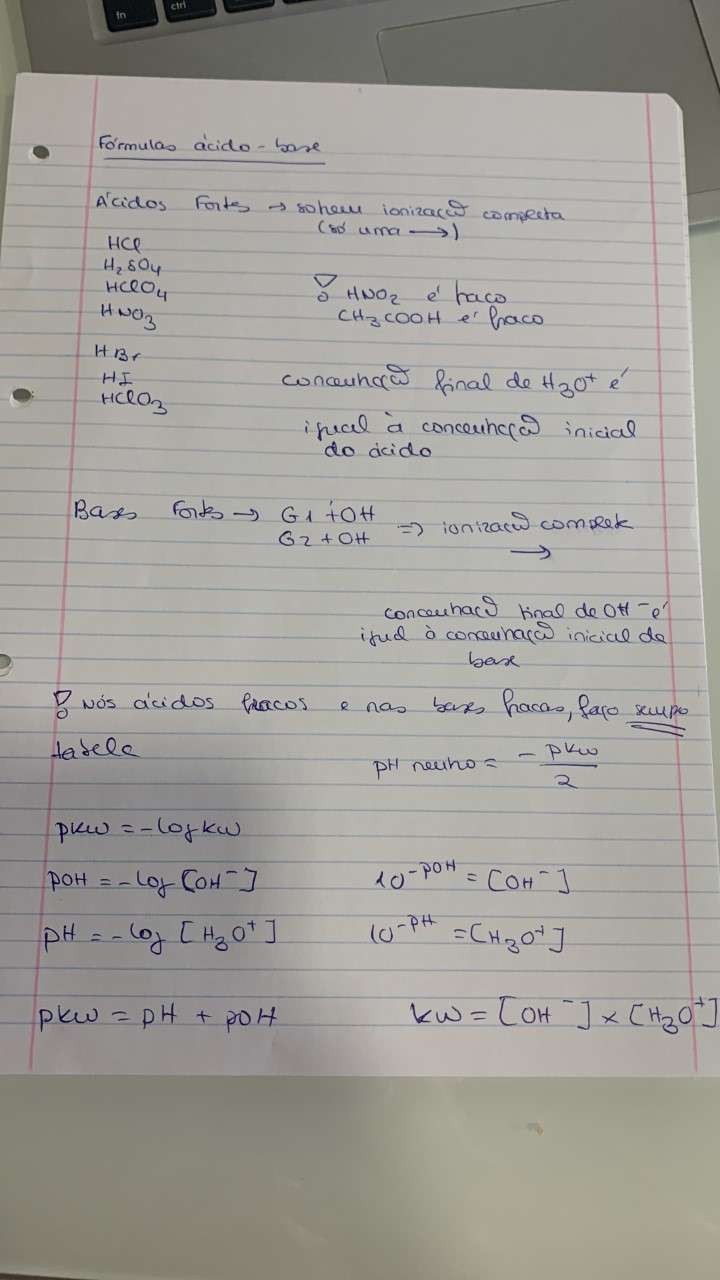 fn
ctrl
Fórmulas ácido-base
Ácidos Fortes → sofrem ionização completa
(só uma →)
HCl
H₂SO₄
HClO₄
HNO₃
! HNO₂ é fraco
CH₃COOH é fraco
HBr
HI
HClO₃
concentração final de H₃O⁺ é
igual à concentração inicial
do ácido
Bases Fortes → G1 + OH
G2 + OH
⇒ ionização complet
→
concentração final de OH⁻ é
igual à concentração inicial da
base
! Nós ácidos fracos e nas bases fracas, faço sempre
tabela
pH neutro = -pkw/2
pkw = -log kw
pOH = -log [OH⁻]
10^-pOH = [OH⁻]
pH = -log [H₃O⁺]
10^-pH = [H₃O⁺]
pkw = pH + pOH
kw = [OH⁻] x [H₃O⁺]